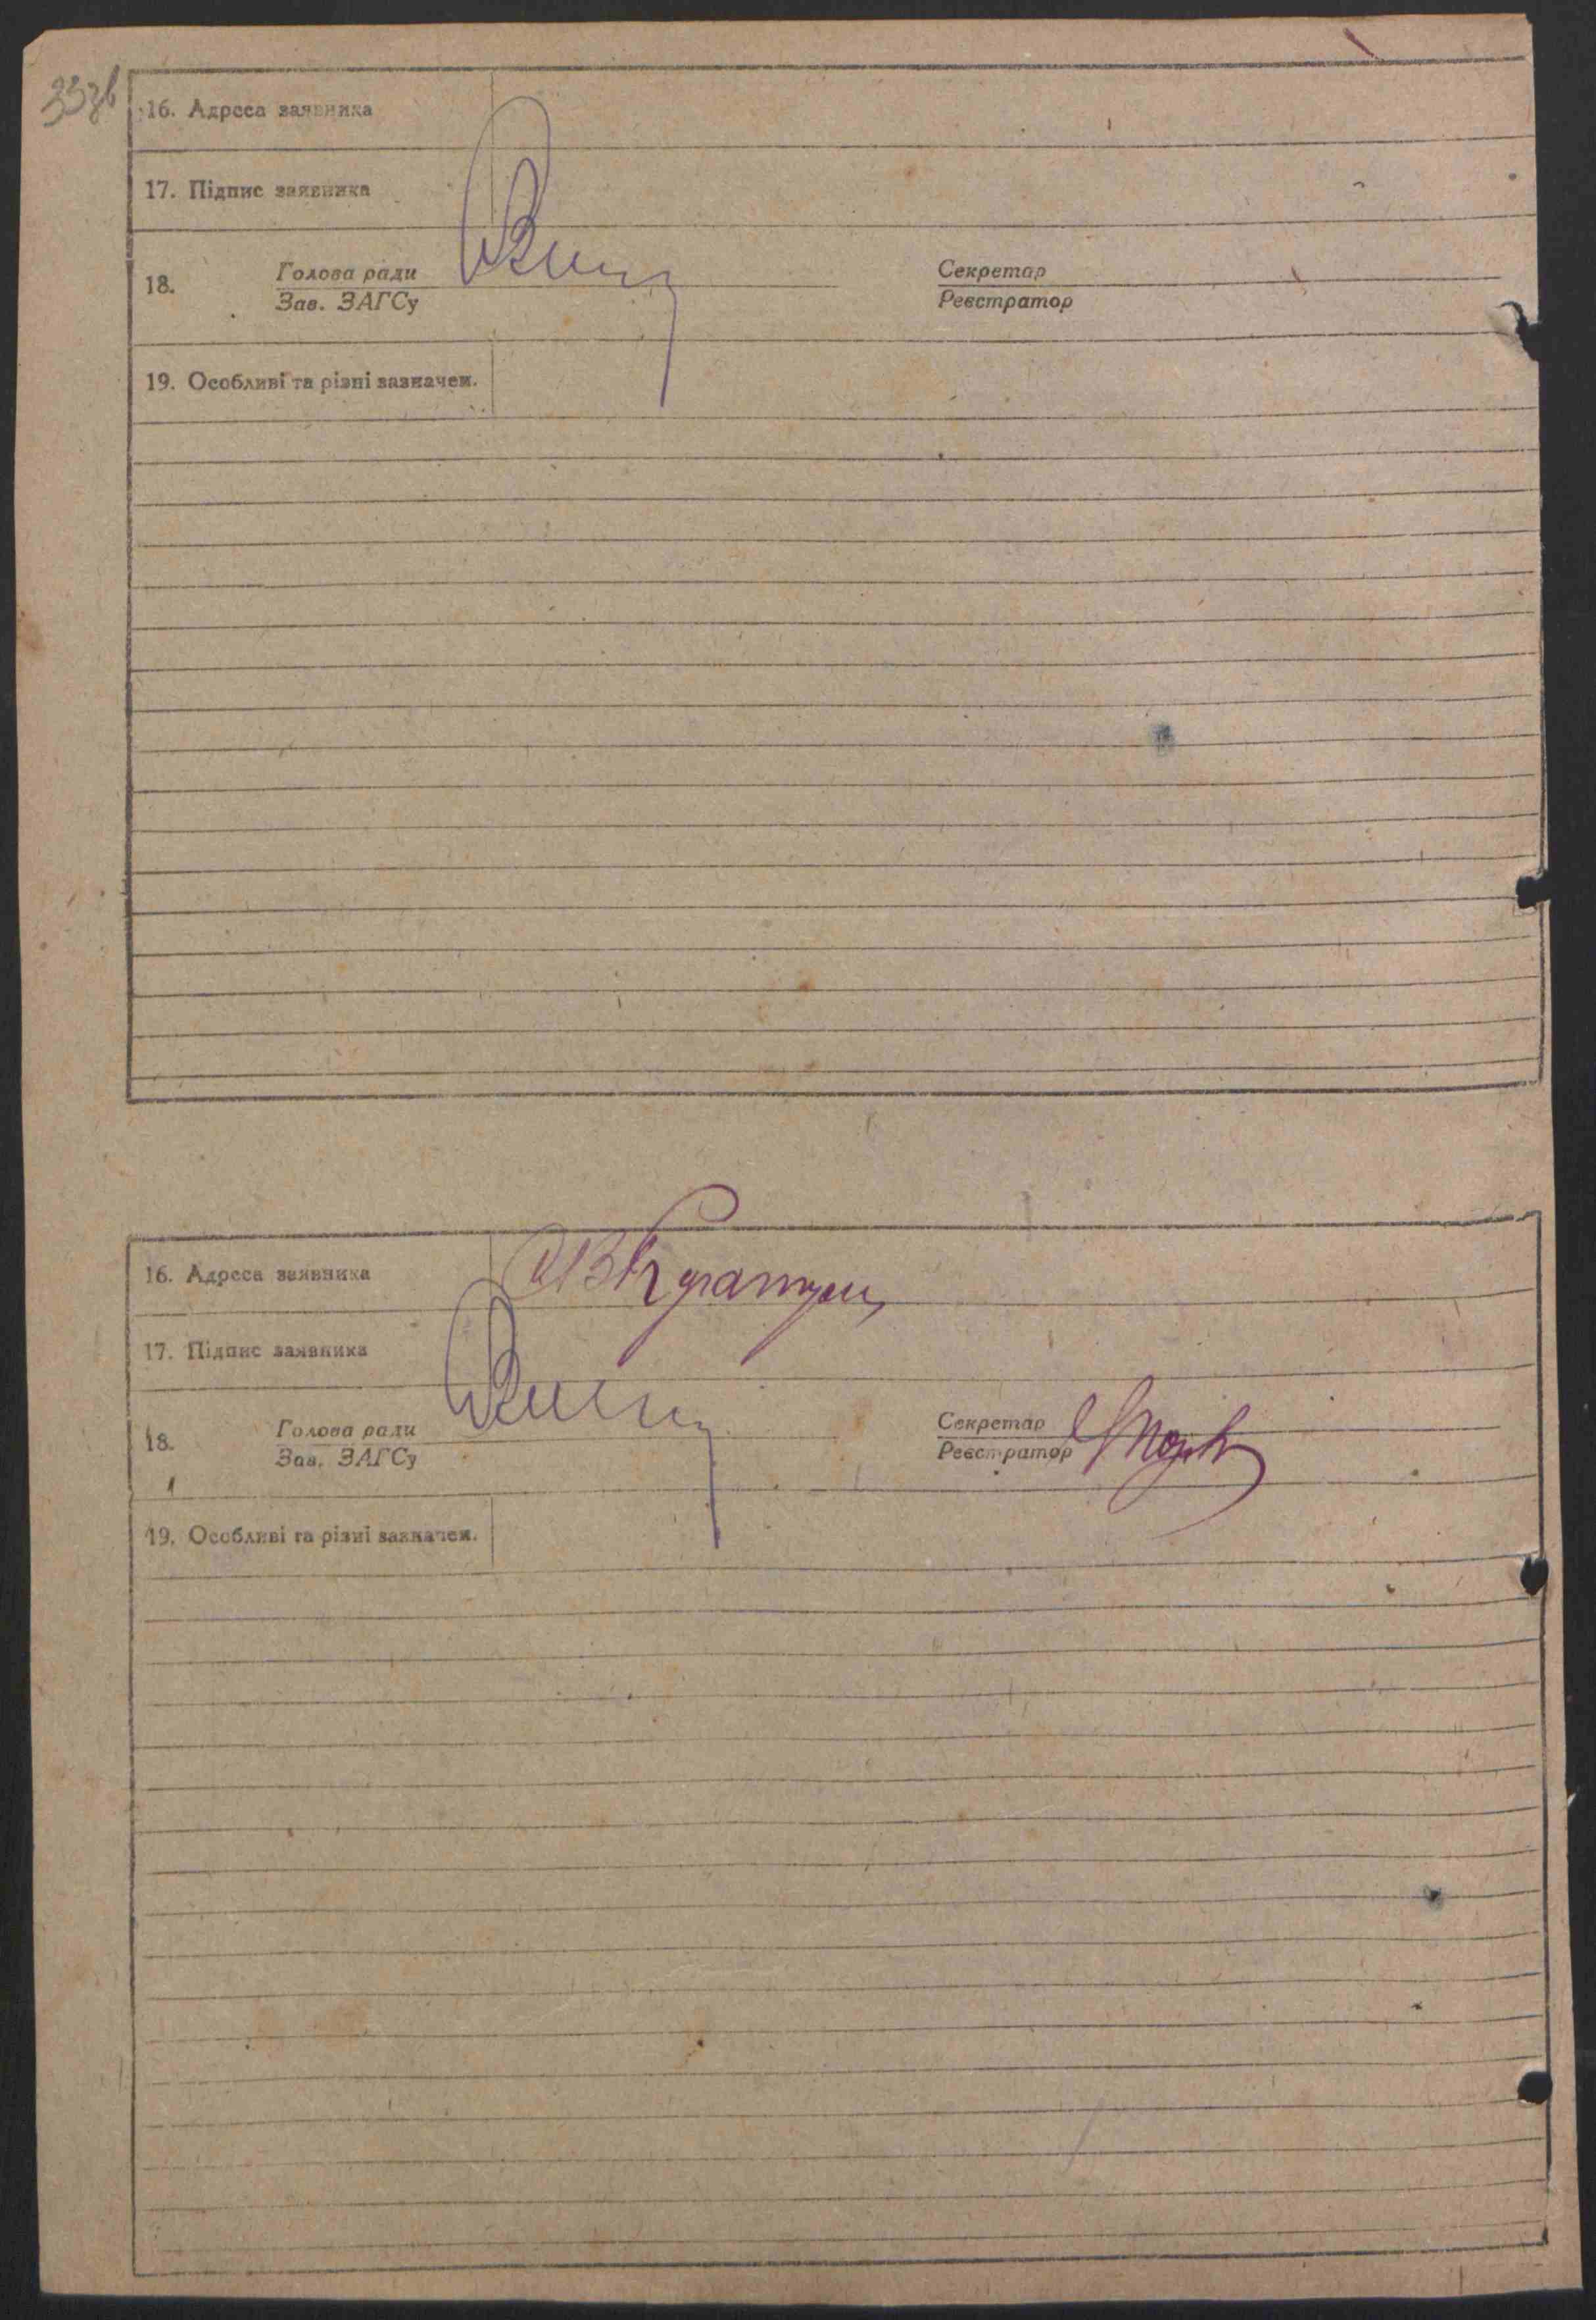 33зв
16. Адреса заявника
17. Підпис заявника
18. Голова ради
Зав. ЗАГСу
Секретар
Реєстратор
19. Особливі та різні зазначен.
16. Адреса заявника
17. Підпис заявника
18. Голова ради
Зав. ЗАГСу
Секретар
Реєстратор
19. Особливі та різні зазначен.